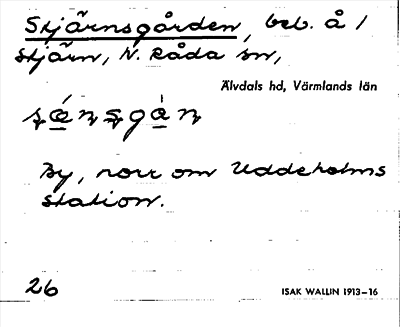 Stjärnsgården, beb. å 1
Stjärn, N. Råda sn,
Älvdals hd, Värmlands län
By, norr om Uddeholms
station.
26
ISAK WALLIN 1913–16